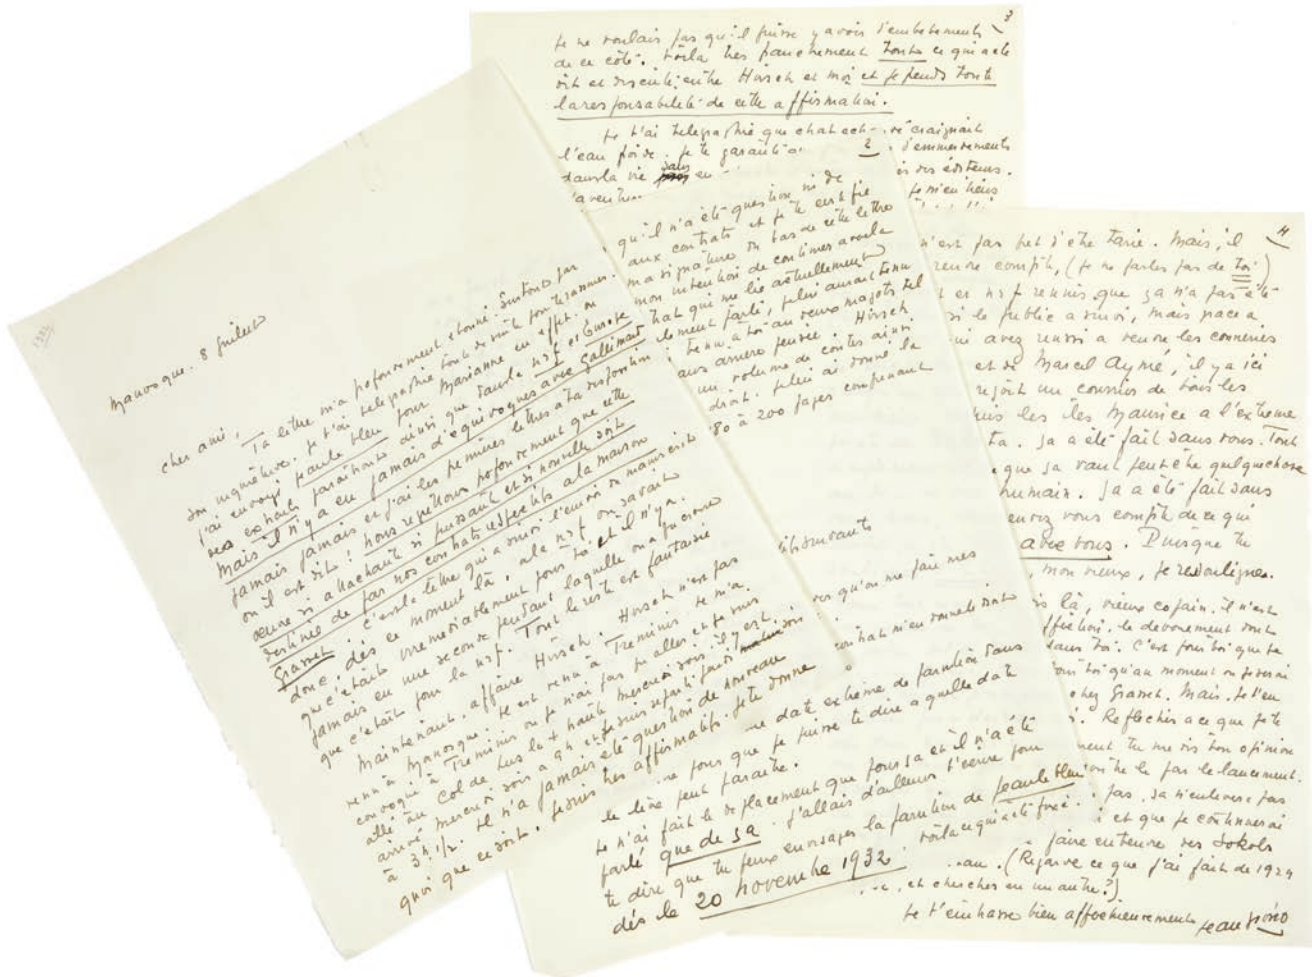 1932
Manosque. 8 Juillet
cher ami,
Ta lettre m'a profondément étonné. Surtout par
son inquiétude. Je t'ai télégraphié tout de suite pour te rassurer.
J'ai envoyé jean le bleu pour Marianne en effet. ou
des extraits paraîtront ainsi que dans la nrf et Europe
Mais il n'y a eu jamais d'équivoques avec Gallimard
jamais jamais et j'ai les premières lettres à ta disposition
où il est dit: nous regrettons profondément que cette
œuvre si attachante si puissante et si nouvelle soit
destinée de par nos contrats respectifs à la maison
Grasset. C'est la lettre qui a suivi l'envoi du manuscrit
donc, dès ce moment là, à la nrf on savait
que c'était irrémédiablement pour toi et il n'y a
jamais eu une seconde pendant laquelle on a pu croire
que c'était pour la nrf. Tout le reste est fantaisie
Maintenant. affaire Hirsch. Hirsch n'est pas
venu à Manosque. Il est venu à Tréminis. Il m'a
convoqué à Tréminis où je n'ai pas pu aller et je suis
allé au col de Lus la + haute mercredi soir. il y est
arrivé mercredi soir à 9h et je suis reparti jeudi matin
à 3h 1/2. Il n'a jamais été question de nouveau
quoi que ce soit. Je suis très affirmatif. Je te donne
2
qu'il n'a été question ni de
aux contrats et je te certifie
ma signature au bas de cette lettre
mon intention de continuer avec la
contrat qui me lie actuellement
Hirsch
un volume de contes ainsi
droit. je lui ai donné la
180 à 200 pages comprenant
suivants
qu'on me paie mes
contrat
date extrême de parution dans
pour que je puisse te dire à quelle date
le livre peut paraître.
Je n'ai fait le déplacement que pour ça et il n'a été
parlé que de ça. J'allais d'ailleurs t'écrire pour
te dire que tu peux envisager la parution de jean le bleu
dès le 20 novembre 1932. voilà ce qui a été fixé.
3
Je ne voulais pas qu'il puisse y avoir d'embêtements
de ce côté. Voilà très franchement tout ce qui a été
dit et discuté entre Hirsch et moi et je prends toute
la responsabilité de cette affirmation.
Je t'ai télégraphié que chat craignait
l'eau froide. Je te garantis d'emmerdements
dans la vie sans en des éditeurs.
je m'en tiens
4
n'est pas bet d'être tarie. Mais, il
rendre compte, (je ne parles pas de toi)
et nrf réunis que ça n'a pas été
si le public a suivi, mais grâce à
qui avez réussi à vendre les conneries
et de Marcel Aymé, il y a ici
reçoit un courrier de tous les
les îles Maurice à l'extrême
ça a été fait sans vous. Tout
que ça vaut peut être quelque chose
humain. ça a été fait sans
rendez vous compte de ce qui
avec vous. Puisque tu
, mon vieux, je te souligne.
là, vieux copain. il n'est
affection, le dévouement
dans toi. C'est pour toi que je
pour toi qu'au moment où je serai
chez Grasset. Mais, je t'en
Réfléchis à ce que je te
tu me dis ton opinion
le lancement.
pas, ça n'enlèvera pas
et que je continuerai
faire entendre des Sokols
(Regarde ce que j'ai fait de 1929
, et cherches en un autre?)
Je t'embrasse bien affectueusement jean giono